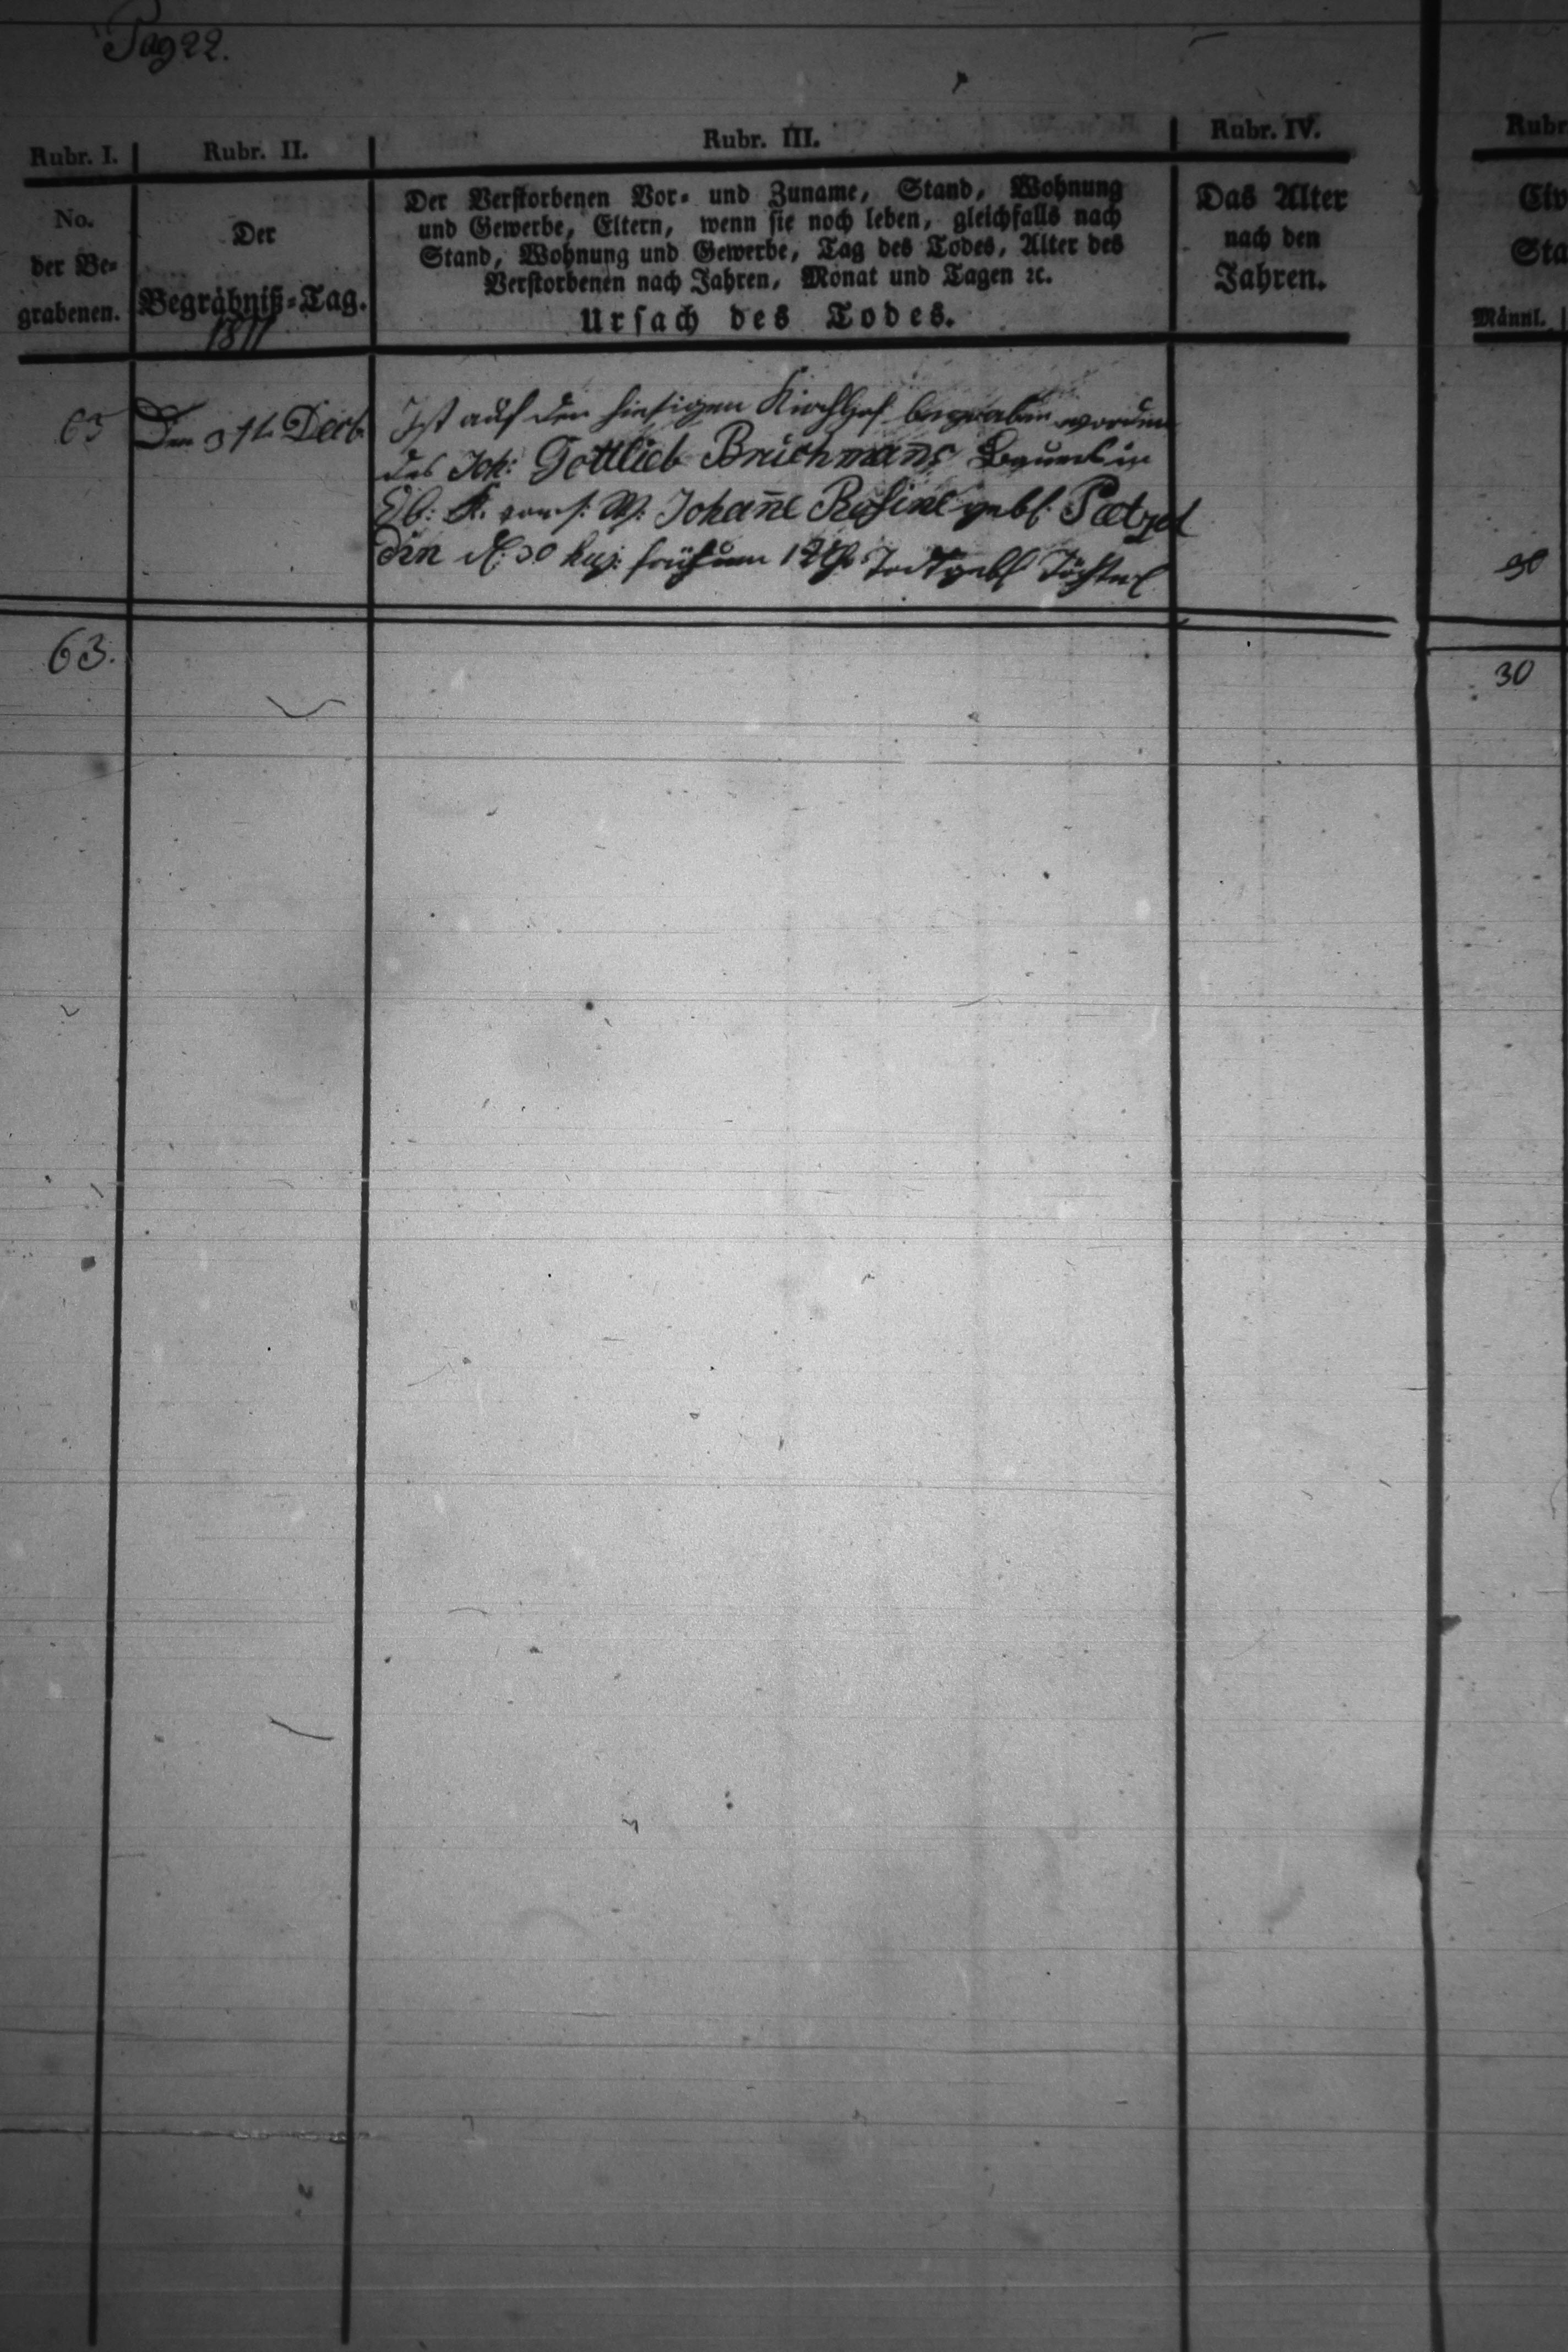 Pag 22.
Rubr. I.
Rubr. II.
Rubr. III.
Rubr. IV.
Rubr
No.
der Be-
grabenen.
Der
Begräbniß-Tag.
1811
Der Verstorbenen Vor- und Zuname, Stand, Wohnung
und Gewerbe, Eltern, wenn sie noch leben, gleichfalls nach
Stand, Wohnung und Gewerbe, Tag des Todes, Alter des
Verstorbenen nach Jahren, Monat und Tagen ꝛc.
Ursach des Todes.
Das Alter
nach den
Jahren.
Civ
Sta
Männl.
63
Den 31t Decb.
Ist auf den hiesigen Kirchhof begraben worden
des Joh: Gottlieb Bruchmañs
von s. W. Johañe Rosine gebl. Paetzel
den d. 30 huj: früh um 12 Todtgebl Töchterl
30
63.
30